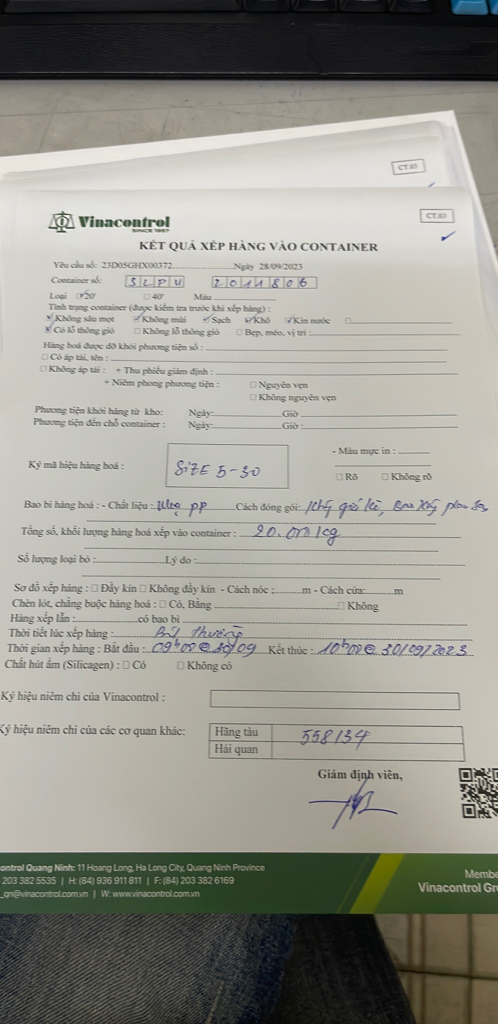 CT.03
CT.03
Vinacontrol
SINCE 1957
KẾT QUẢ XẾP HÀNG VÀO CONTAINER
Yêu cầu số: 23D05GHX00372 Ngày 28/09/2023
Container số: 2011806
Loại 20' 40' Màu
Tình trạng container (được kiểm tra trước khi xếp hàng) :
Không sâu mọt Không mùi Sạch Khô Kín nước
Có lỗ thông gió Không lỗ thông gió Bẹp, méo, vị trí :
Hàng hoá được dỡ khỏi phương tiện số :
Có áp tải, tên :
Không áp tải : + Thu phiếu giám định :
+ Niêm phong phương tiện : Nguyên vẹn
Không nguyên vẹn
Phương tiện khởi hàng từ kho: Ngày: Giờ
Phương tiện đến chỗ container : Ngày: Giờ :
- Màu mực in :
Ký mã hiệu hàng hoá : SIZE 5-30
Rõ Không rõ
Bao bì hàng hoá : - Chất liệu : PP Cách đóng gói:
Tổng số, khối lượng hàng hoá xếp vào container : 20.000 kg
Số lượng loại bỏ : Lý do :
Sơ đồ xếp hàng : Đầy kín Không đầy kín - Cách nóc : m - Cách cửa: m
Chèn lót, chằng buộc hàng hoá : Có, Bằng Không
Hàng xếp lẫn : có bao bì
Thời tiết lúc xếp hàng : Bình thường
Thời gian xếp hàng : Bắt đầu : 09h00 @ 30/09 Kết thúc : 10h00 @ 30/09/2023
Chất hút ẩm (Silicagen) : Có Không có
Ký hiệu niêm chì của Vinacontrol :
Ký hiệu niêm chì của các cơ quan khác: Hãng tàu 558134
Hải quan
Giám định viên,
ontrol Quang Ninh: 11 Hoang Long, Ha Long City, Quang Ninh Province
203 382 5535 | H: (84) 936 911 811 | F: (84) 203 382 6169
_qn@vinacontrol.com.vn | W: www.vinacontrol.com.vn
Membe
Vinacontrol Gr